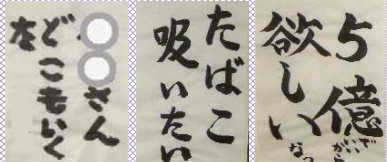 さん
どこもいく
な
たばこ
吸いたい
5億
欲しい